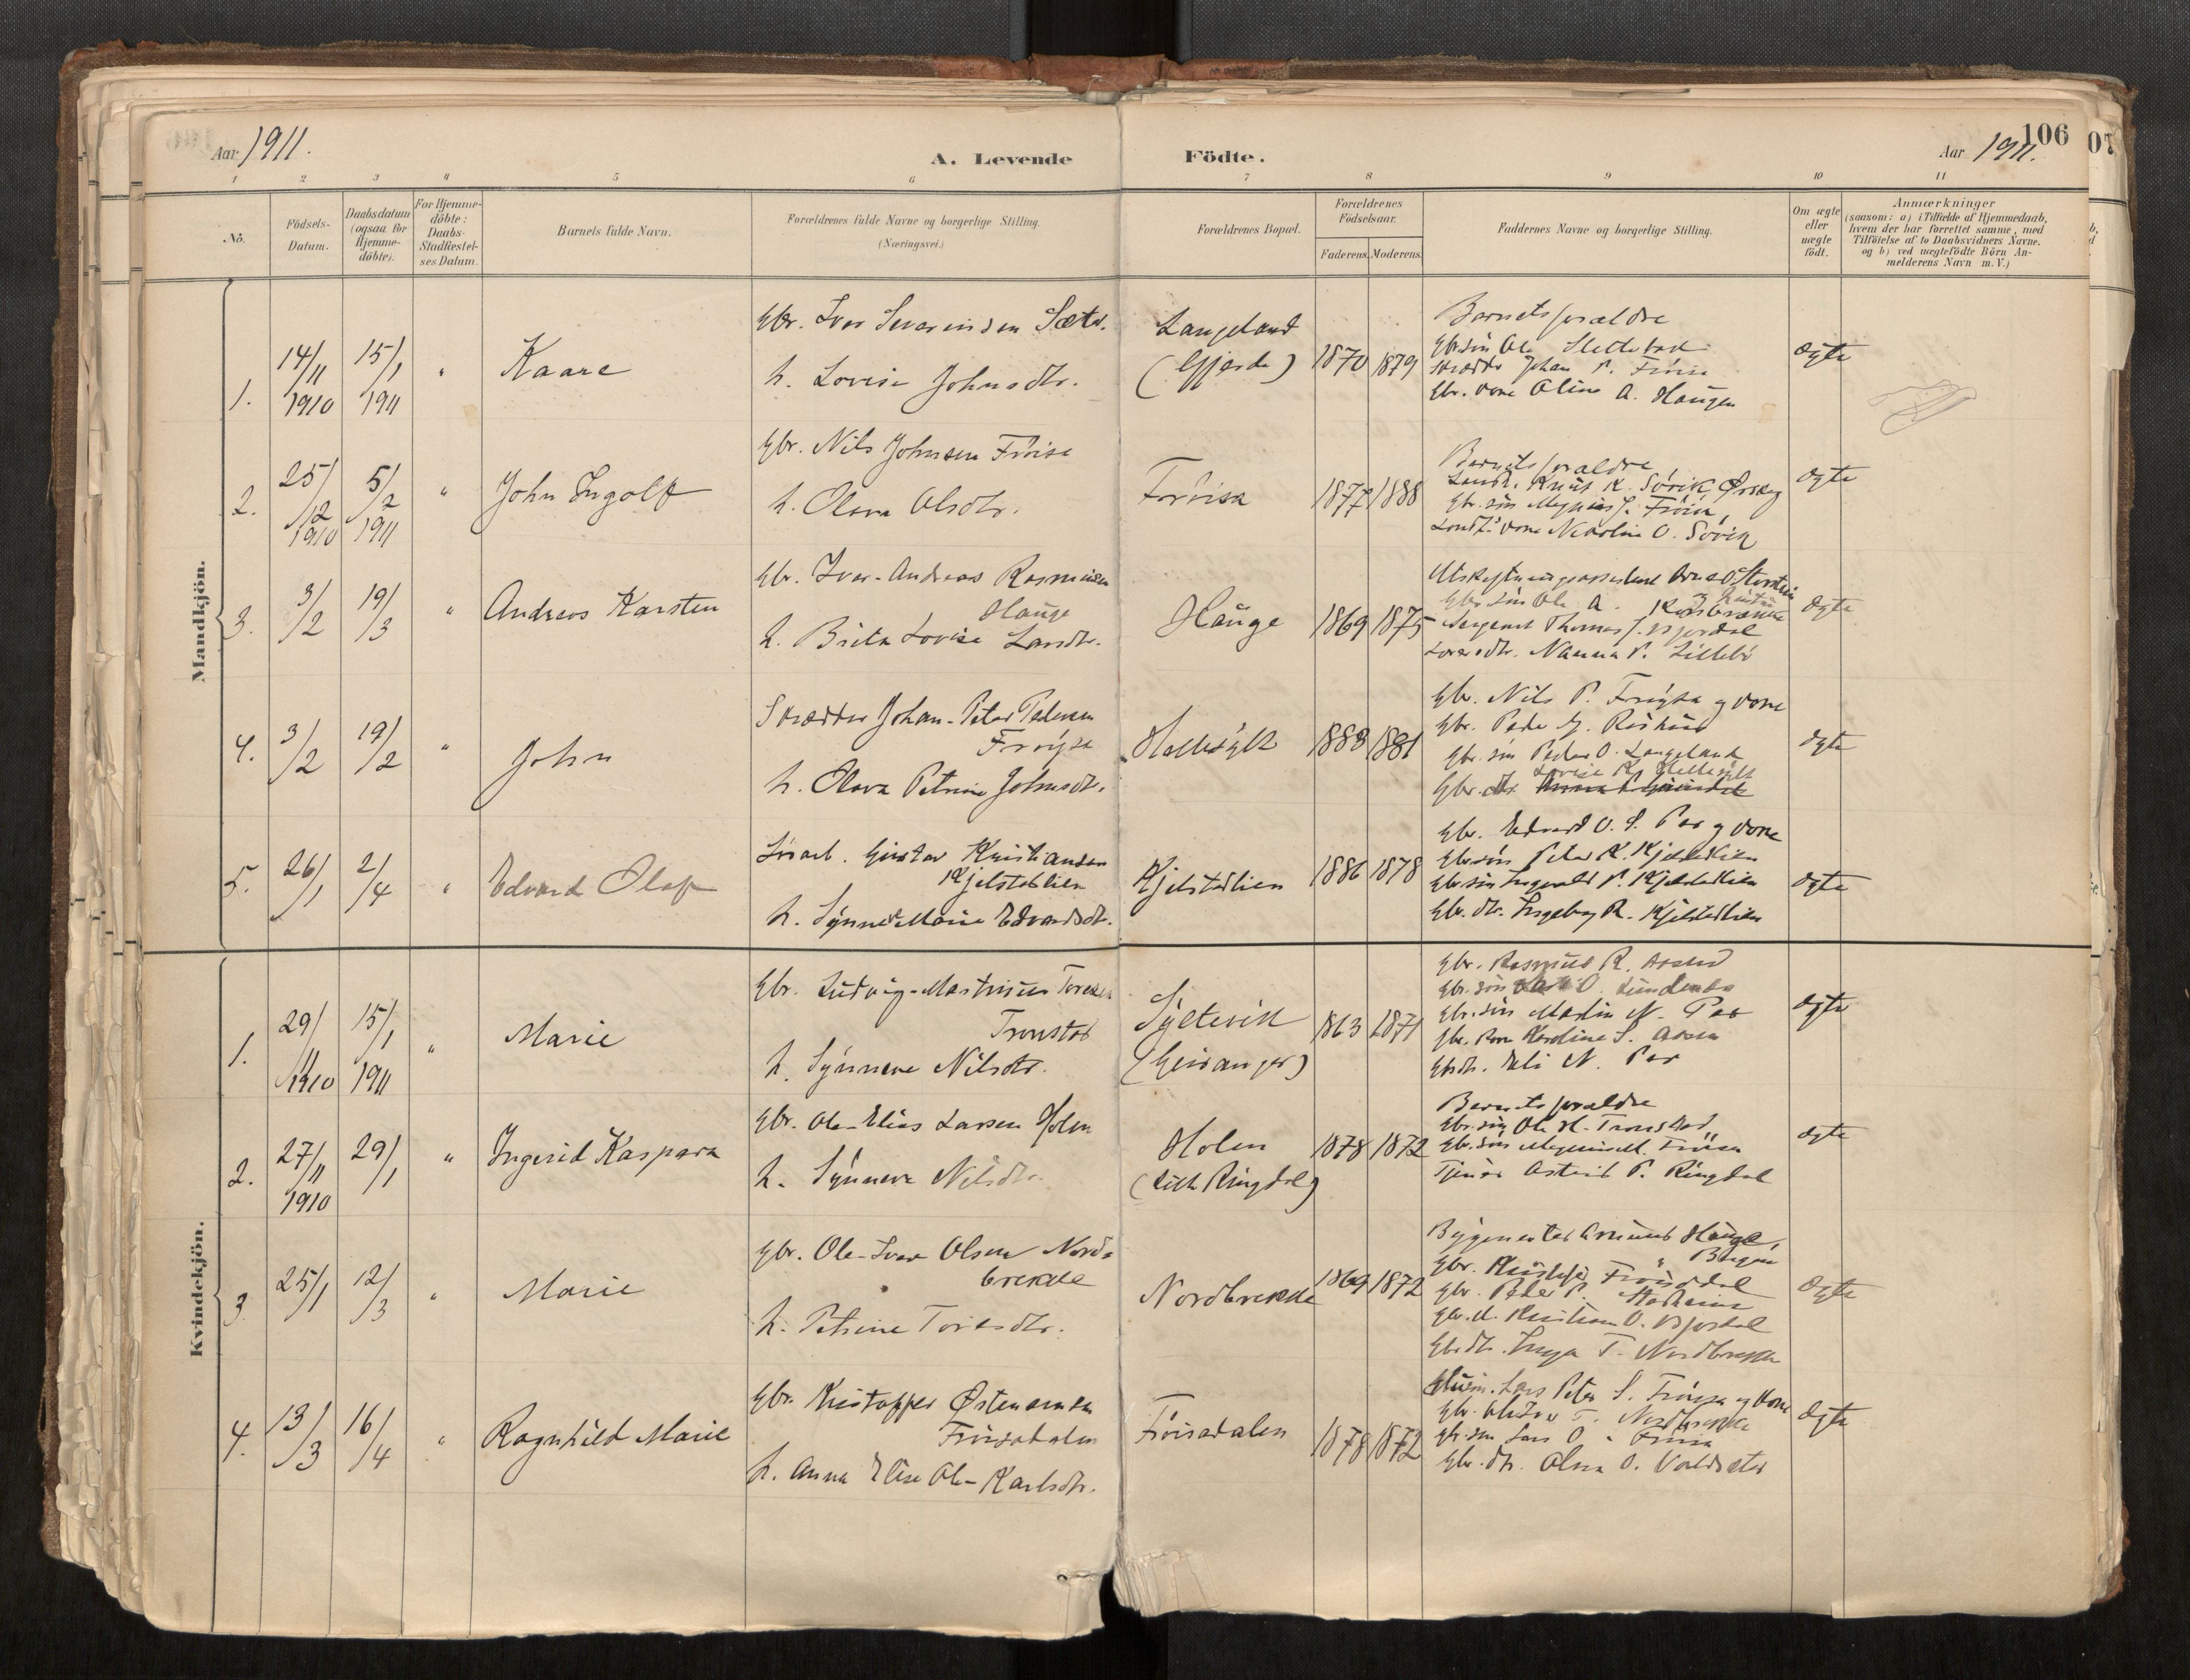 Aar 1911.
A. Levende Födte.
106
Aar 1911.
07
1 2 3 4 5 6 7 8 9 10 11
No.
Födsels-
Datum.
Daabsdatum
(ogsaa for
Hjemme-
döbte).
For Hjemme-
döbte:
Daabs-
Stadfæstel-
ses Datum.
Barnets fulde Navn.
Forældrenes fulde Navne og borgerlige Stilling.
(Næringsvei.)
Forældrenes Bopæl.
Forældrenes
Födselsaar.
Faderens. Moderens.
Faddernes Navne og borgerlige Stilling.
Om ægte
eller
uægte
födt.
Anmærkninger
(saasom: a) i Tilfælde af Hjemmedaab,
hvem der har forrettet samme, med
Tilföielse af to Daabsvidners Navne.
og b) ved uægtefödte Börn An-
melderens Navn m. V.)
Mandkjön.
1.
14/11
1910
15/1
1911
"
Kaare
Gbr. Iver Severinsen Sætr.
h. Lovise Johnsdtr.
Langeland
(Gjerde)
1870 1879
Barnets forældre
Gbr. sön Ole
Johan P. Fröisa
Gbr. kone Oline A. Haugen
ægte
2.
25/12
1910
5/2
1911
"
John Ingolf
Gbr. Nils Johnsen Fröisa
h. Olava Olsdtr.
Fröisa
1877 1888
Barnets forældre
Knut K. Sövik
Gbr. sön
kone O. Sövik
ægte
3.
3/2
19/3
"
Andreas Karsten
Gbr. Iver-Andreas Rasmussen
Hauge
h. Brita Lovise Larsdtr.
Hauge
1869 1875
Gbr. sön Ole A.
Sergeant Thomas J. Bjordal
Nanna P. Lillebö
ægte
4.
3/2
19/2
"
John
Skrædder Johan-Peter Pedersen
Fröysa
h. Olava Petrine Johnsdtr.
Hellesylt
1888 1881
Gbr. Nils P. Fröysa og kone
Gbr. Peder
Gbr. sön Peder O. Langeland
Lovise K. Hellesylt
Gbr. dtr.
ægte
5.
26/1
2/4
"
Edvard Olaf
Gustav Kristiansen
Kjelstadlien
h. Synneve Marie Edvardsdtr.
Kjelstadlien
1886 1878
Gbr. Edvard O. S. Paa og kone
Gbr. sön Peter K. Kjelstadlien
Gbr. sön Ingvald P. Kjelstadlien
Gbr. dtr. Ingeborg R. Kjelstadlien
ægte
Kvindekjön.
1.
29/11
1910
15/1
1911
"
Marie
Gbr. Ludvig-Martinus Toresen
Tronstad
h. Synneve Nilsdtr.
Syltevik
(Geiranger)
1863 1871
Gbr. Rasmus R.
Gbr. sön O.
Gbr. sön Martin N. Paa
Gbr. kone Karoline S.
Gbr. dtr. Eli N. Paa
ægte
2.
27/11
1910
29/1
"
Ingerid Kaspara
Gbr. Ole-Elias Larsen Holen
h. Synneve Nilsdtr.
Holen
(Litle Ringdal)
1878 1872
Barnets forældre
Gbr. sön Ole H. Tronstad
Gbr. sön Fröisa
Tjener Astrid P. Ringdal
ægte
3.
25/1
12/3
"
Marie
Gbr. Ole-Iver Olsen Nord-
brekke
h. Petrine Toresdtr.
Nordbrekke
1869 1872
Bygmester Hauge,
" Bergen
Gbr. Kristofer Fröisdal
Gbr. Peder P.
Kristian O. Bjordal
Gbr. dtr. Inga T. Nordbrekke
ægte
4.
13/3
16/4
"
Ragnhild Marie
Gbr. Kristoffer Östensen
Fröisadalen
h. Anna Elise Ole-Karlsdtr.
Fröisadalen
1878 1872
Lars Peter S. Fröysa og kone
Gbr. Ole Iver T. Nordbrekke
Gbr. sön Lars O. Fröisa
Gbr. dtr. Olava O.
ægte